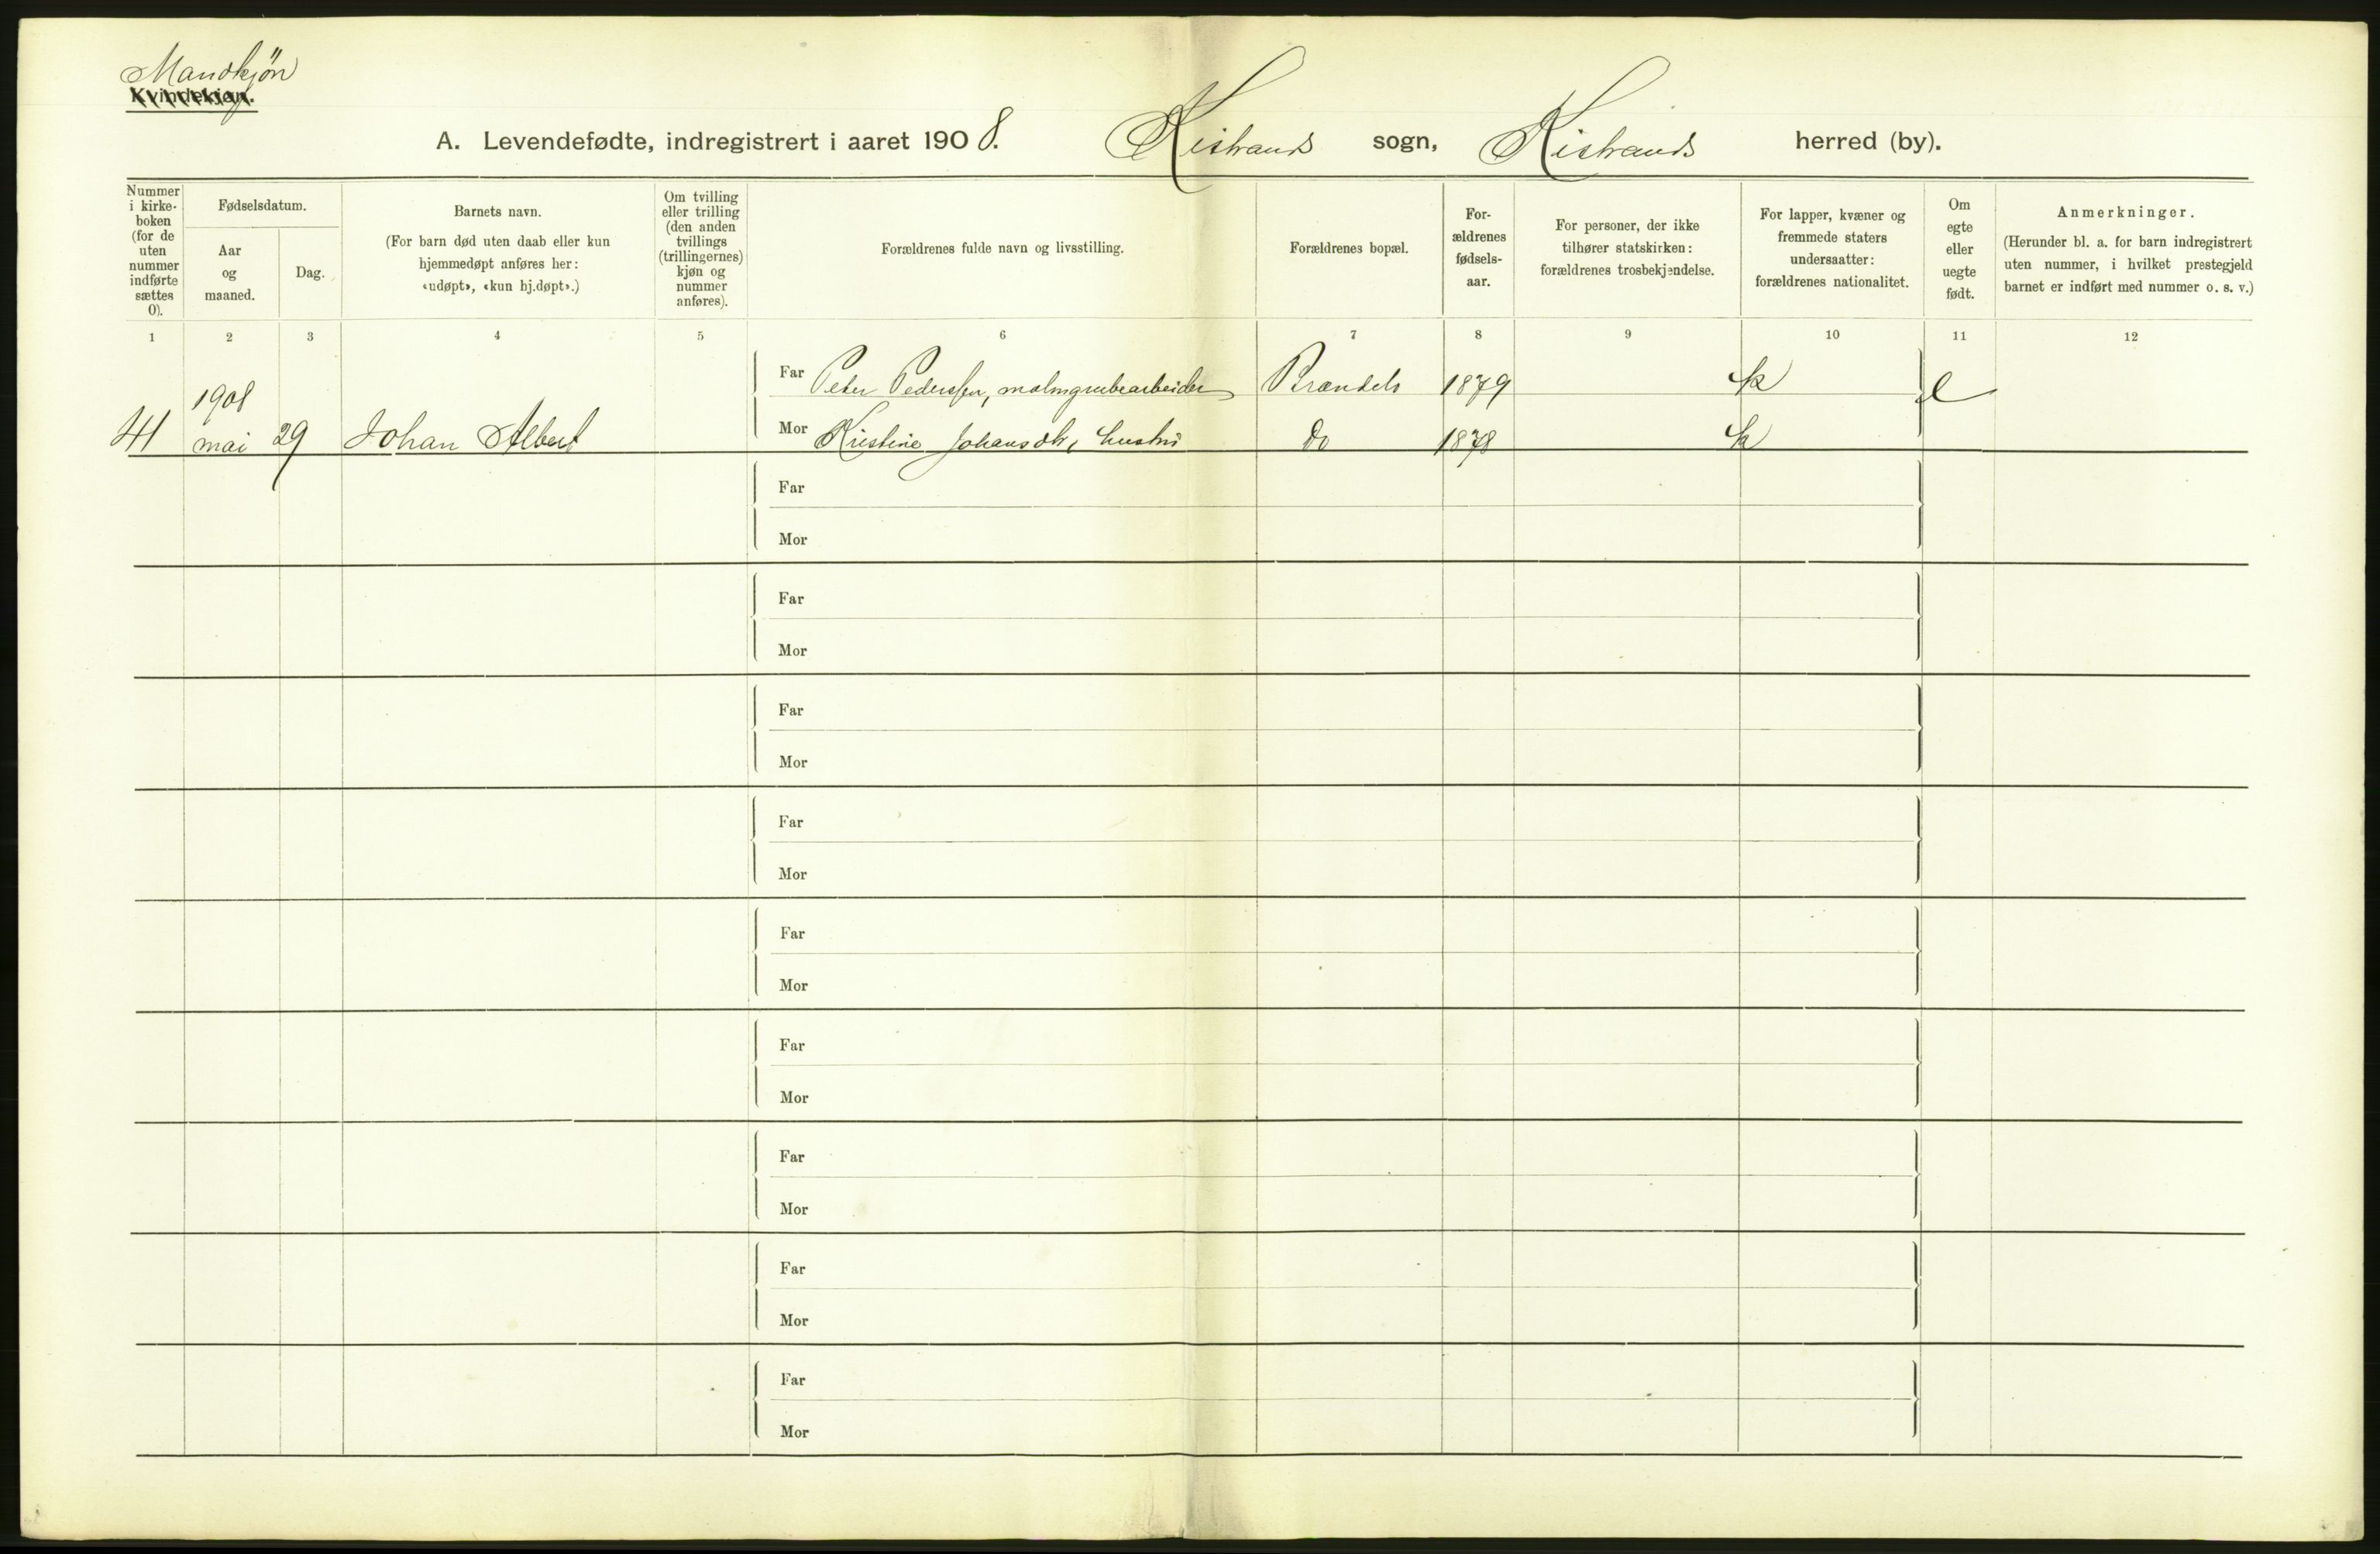 Mandkjön
Kvindekjøn.
A. Levendefødte, indregistrert i aaret 1908. Kistrands sogn, Kistrands herred (by).
Nummer i kirke-boken (for de uten nummer indførte sættes 0).
Fødselsdatum.
Aar og maaned.
Dag.
Barnets navn.
(For barn død uten daab eller kun
hjemmedøpt anføres her:
«udøpt», «kun hj.døpt».)
Om tvilling
eller trilling
(den anden
tvillings
(trillingernes)
kjøn og
nummer
anføres).
Forældrenes fulde navn og livsstilling.
Forældrenes bopæl.
For-
ældrenes
fødsels-
aar.
For personer, der ikke
tilhører statskirken:
forældrenes trosbekjendelse.
For lapper, kvæner og
fremmede staters
undersaatter:
forældrenes nationalitet.
Om
egte
eller
uegte
født.
Anmerkninger.
(Herunder bl. a. for barn indregistrert
uten nummer, i hvilket prestegjeld
barnet er indført med nummer o. s. v.)
1 2 3 4 5 6 7 8 9 10 11 12
1908 Far Peter Pederssen, malmgrubearbeider Brændels 1879 k e
41 mai 29 Johan Albert Mor Kristine Johansdtr, hustru Do 1878 k
Far
Mor
Far
Mor
Far
Mor
Far
Mor
Far
Mor
Far
Mor
Far
Mor
Far
Mor
Far
Mor